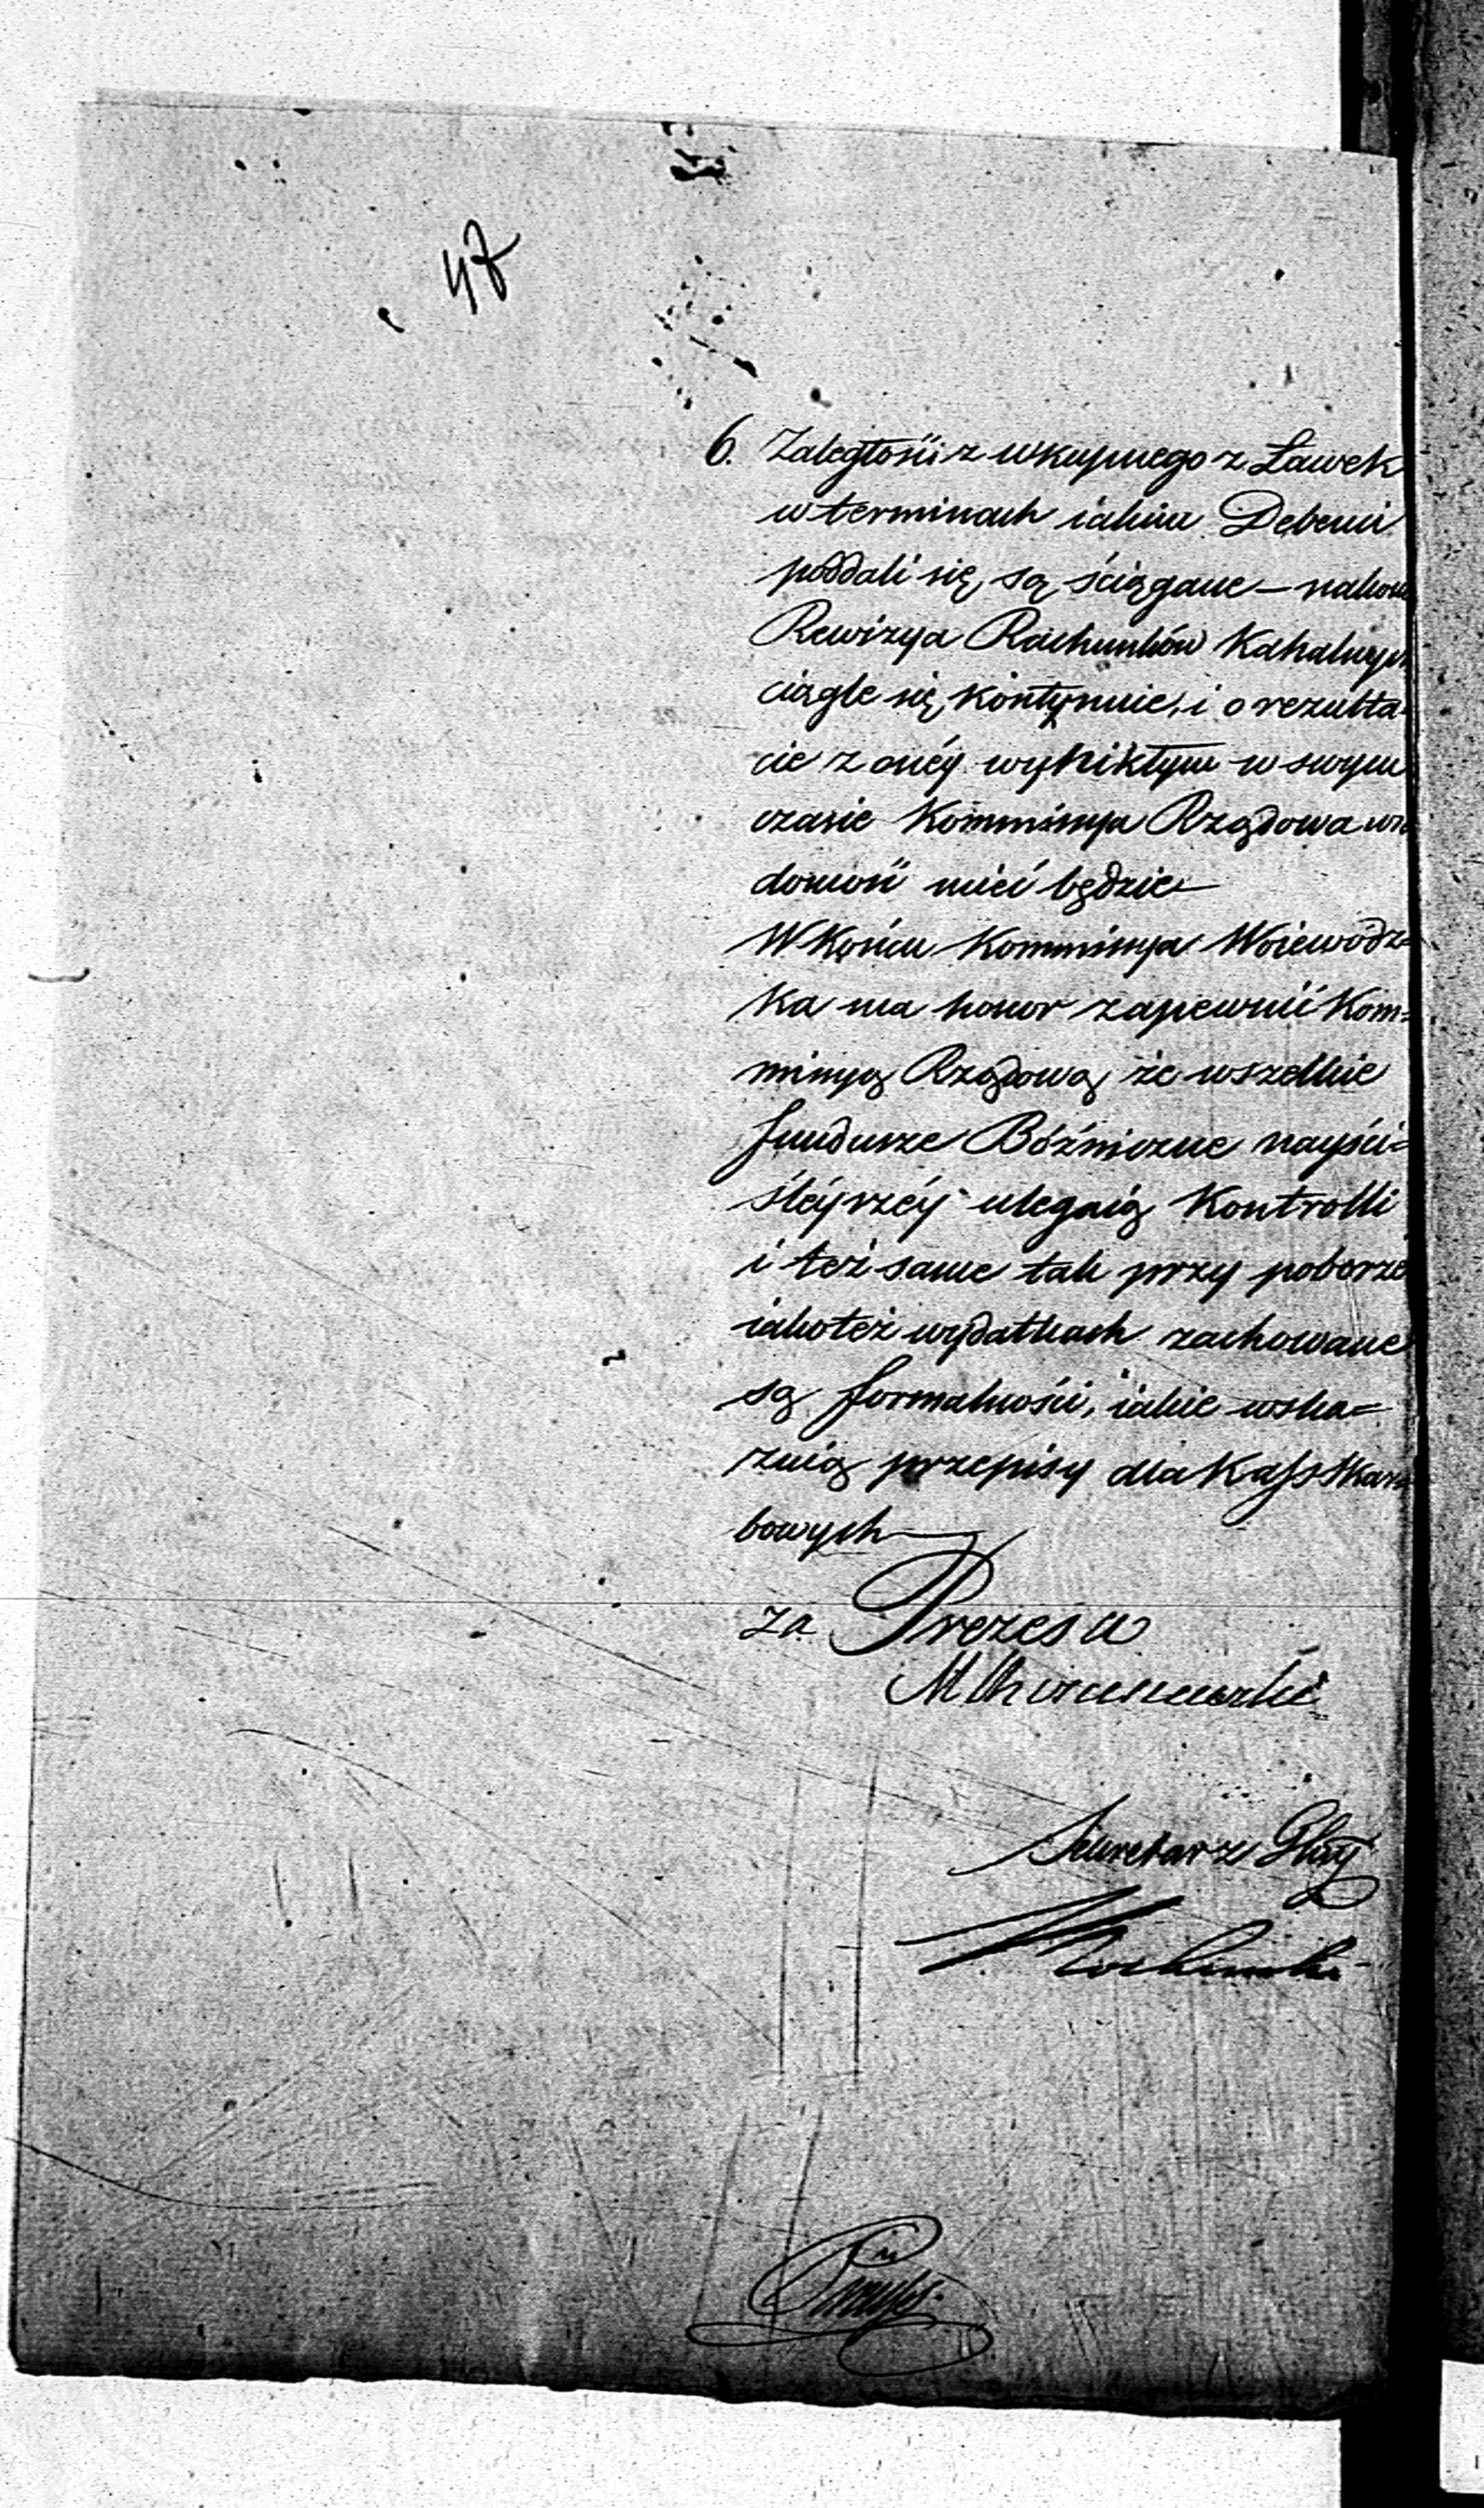 47
6. Zaległości z wkupnego z Ławek
w terminach iakim Debenci
poddali się, są ściągane — nako
Rewizya Rachunków Kahalnych
ciągle się kontynuie, i o rezulta-
cie z onéy wynikłym w swym
czasie Kommissya Rządowa wia
domość mieć będzie —
W Końcu Kommissya Woiewodz-
ka ma honor zapewnić Kom-
missyą Rządową że wszelkie
fundusze Bóźniczne nayści-
śléyszéy ulegaią Kontrolli
i też same tak przy poborze
iakoteż wydatkach zachowane
są formalności, iakie wska=
zuią przepisy dla Kass Skar-
bowych —
za Prezesa
Sekretarz Glny